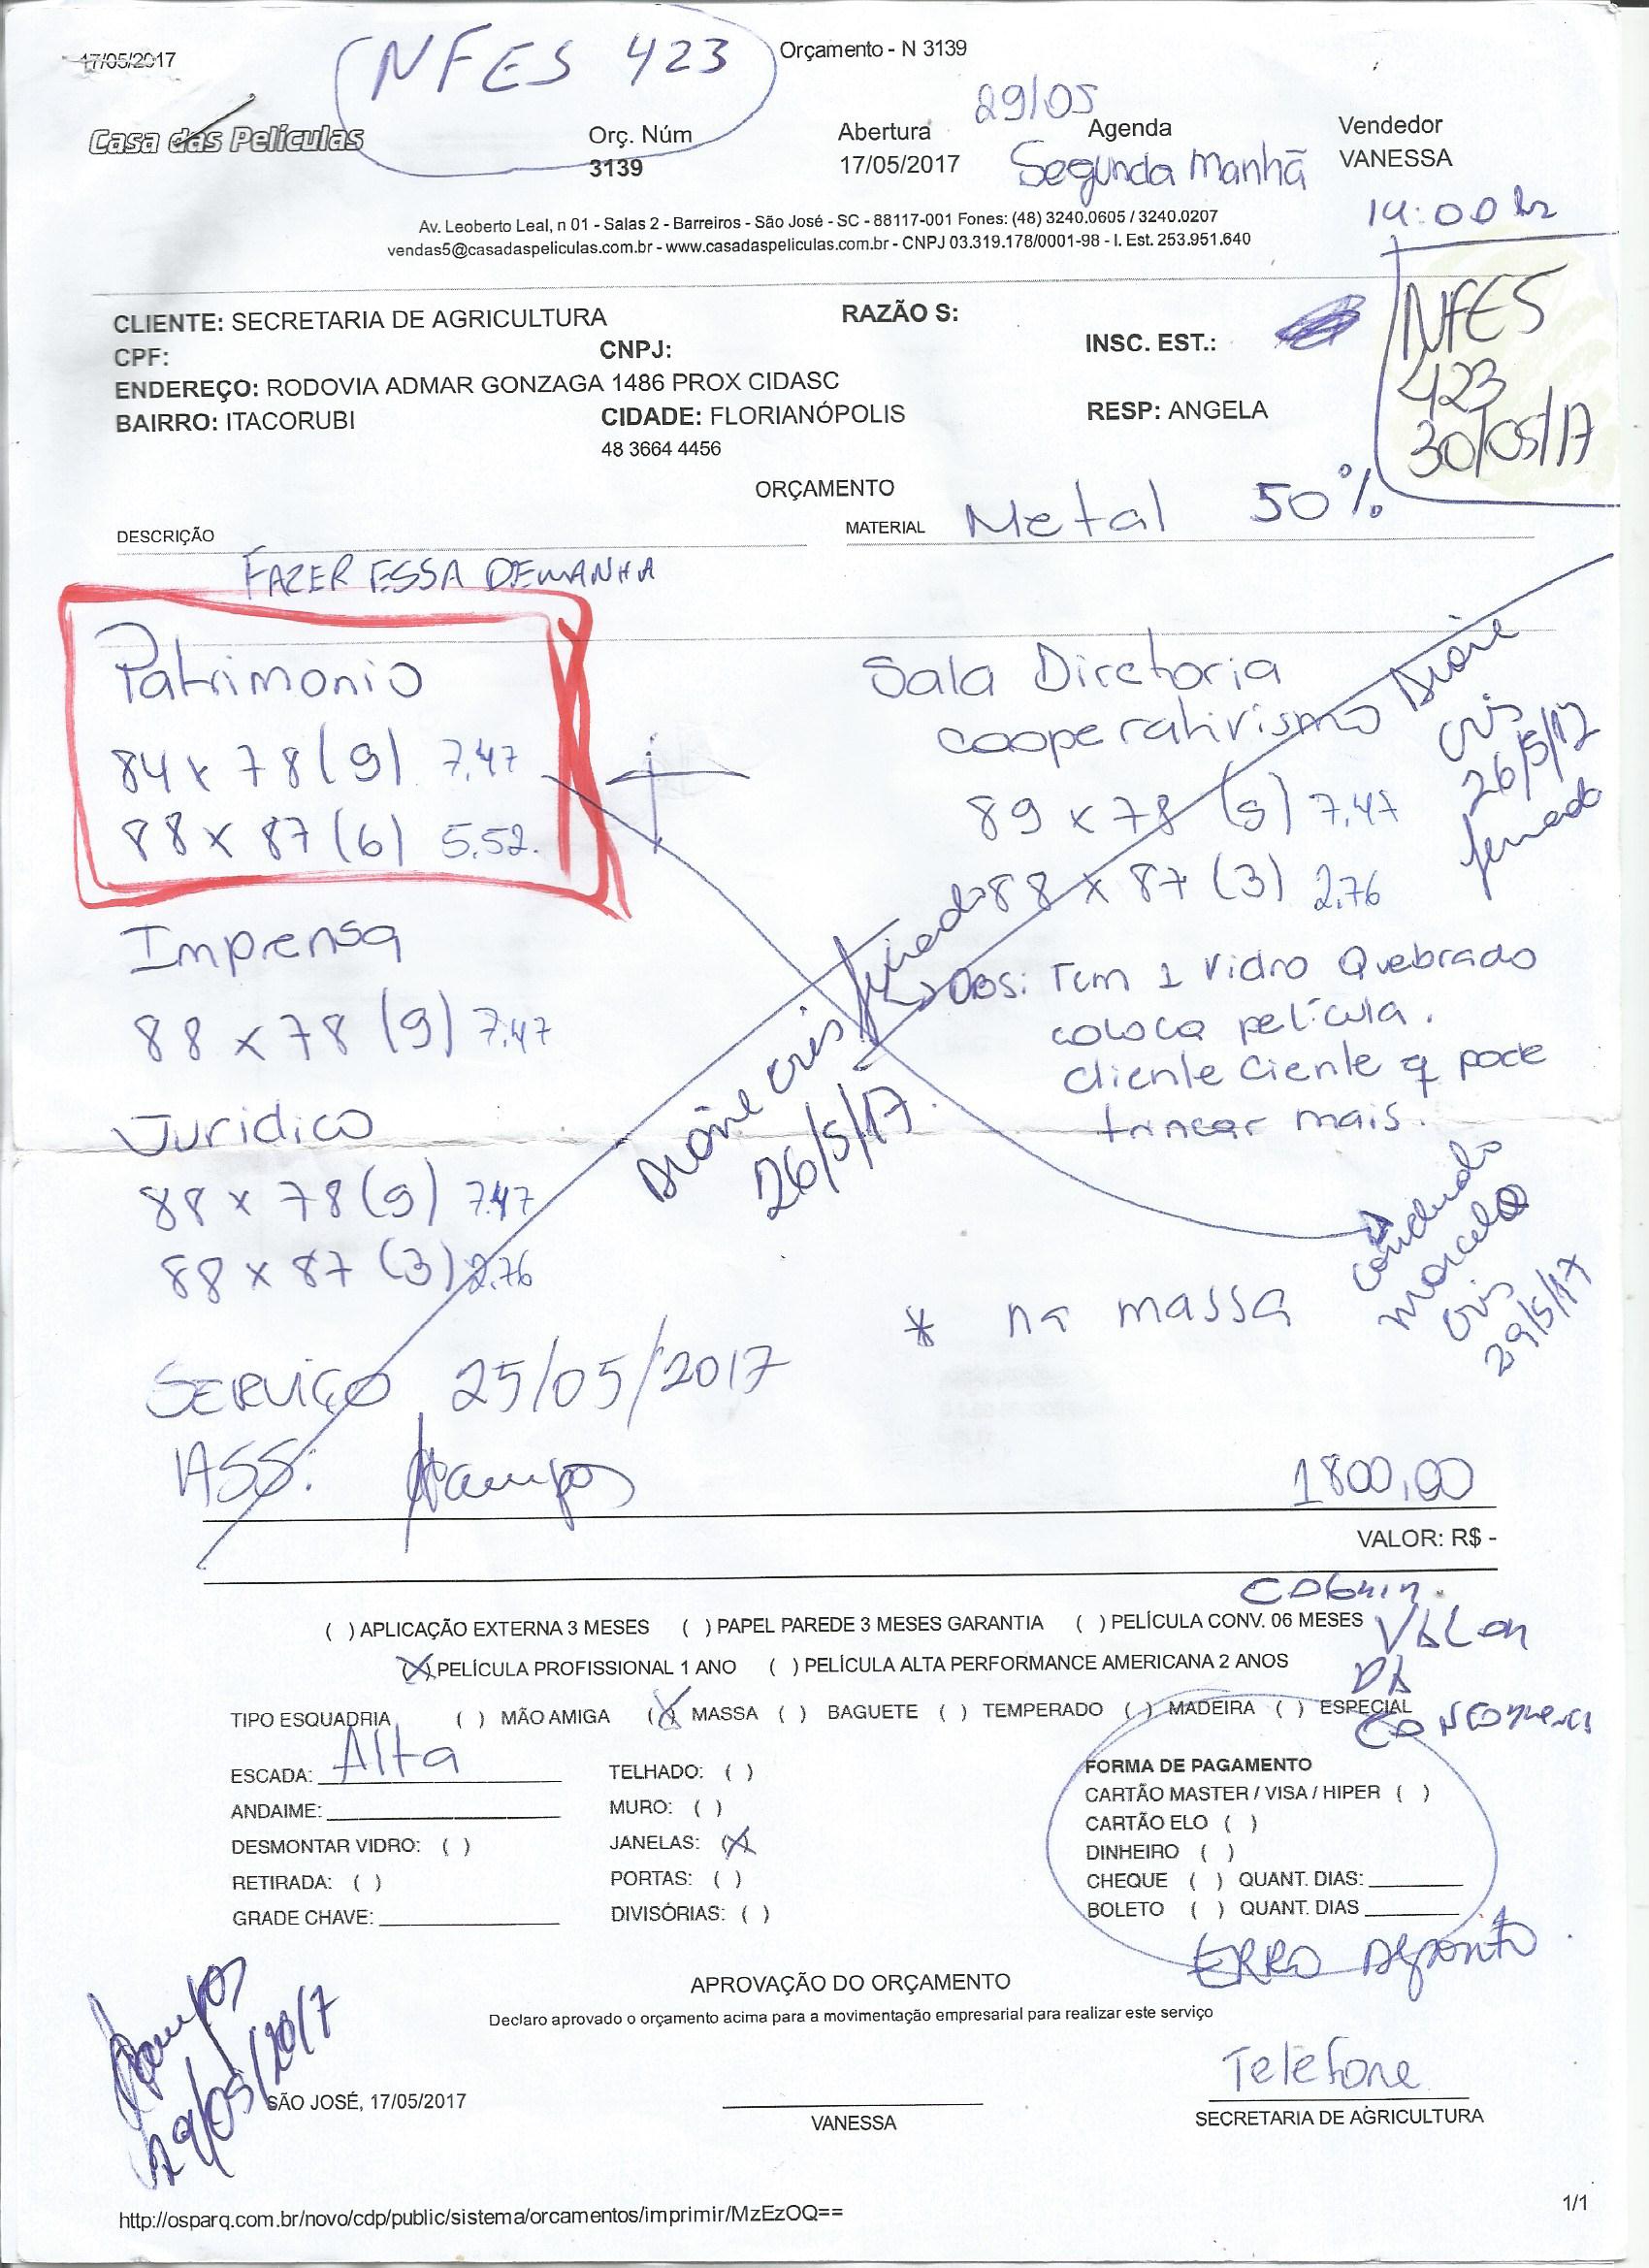 17/05/2017
NFES 423
Orçamento - N 3139
Casa das Películas
Orç. Núm
3139
Abertura
17/05/2017
29/05
Agenda
Segunda Manhã
Vendedor
VANESSA
14:00 hr
Av. Leoberto Leal, n 01 - Salas 2 - Barreiros - São José - SC - 88117-001 Fones: (48) 3240.0605 / 3240.0207
vendas5@casadaspeliculas.com.br - www.casadaspeliculas.com.br - CNPJ 03.319.178/0001-98 - I. Est. 253.951.640
CLIENTE: SECRETARIA DE AGRICULTURA
RAZÃO S:
CPF:
CNPJ:
INSC. EST.:
ENDEREÇO: RODOVIA ADMAR GONZAGA 1486 PROX CIDASC
BAIRRO: ITACORUBI
CIDADE: FLORIANÓPOLIS
RESP: ANGELA
48 3664 4456
NFES
423
30/05/17
ORÇAMENTO
DESCRIÇÃO
MATERIAL Metal 50%
FAZER ESSA DEMANHA
Patrimonio
84 x 78 (9) 7,47
88 x 87 (6) 5,52.
Imprensa
88 x 78 (9) 7,47
Juridico
88 x 78 (9) 7,47
88 x 87 (3) 2,76
Sala Diretoria
cooperativismo
89 x 78 (9) 7,47
88 x 87 (3) 2,76
Obs: Tem 1 Vidro Quebrado
coloca película.
cliente ciente q pode
trincar mais.
cris
26/5/17
cris
26/5/17.
* na massa
concluido
marcelo
cris
29/5/17
SERVIÇO 25/05/2017
ASS:
1800,00
VALOR: R$ -
VALOR
DA
( ) APLICAÇÃO EXTERNA 3 MESES ( ) PAPEL PAREDE 3 MESES GARANTIA ( ) PELÍCULA CONV. 06 MESES
(X) PELÍCULA PROFISSIONAL 1 ANO ( ) PELÍCULA ALTA PERFORMANCE AMERICANA 2 ANOS
TIPO ESQUADRIA ( ) MÃO AMIGA (X) MASSA ( ) BAGUETE ( ) TEMPERADO ( ) MADEIRA ( ) ESPECIAL
ESCADA: Alta
ANDAIME:
DESMONTAR VIDRO: ( )
RETIRADA: ( )
GRADE CHAVE:
TELHADO: ( )
MURO: ( )
JANELAS: (X)
PORTAS: ( )
DIVISÓRIAS: ( )
FORMA DE PAGAMENTO
CARTÃO MASTER / VISA / HIPER ( )
CARTÃO ELO ( )
DINHEIRO ( )
CHEQUE ( ) QUANT. DIAS:
BOLETO ( ) QUANT. DIAS
APROVAÇÃO DO ORÇAMENTO
Declaro aprovado o orçamento acima para a movimentação empresarial para realizar este serviço
29/05/2017
SÃO JOSÉ, 17/05/2017
VANESSA
Telefone
SECRETARIA DE AGRICULTURA
http://osparq.com.br/novo/cdp/public/sistema/orcamentos/imprimir/MzEzOQ==
1/1